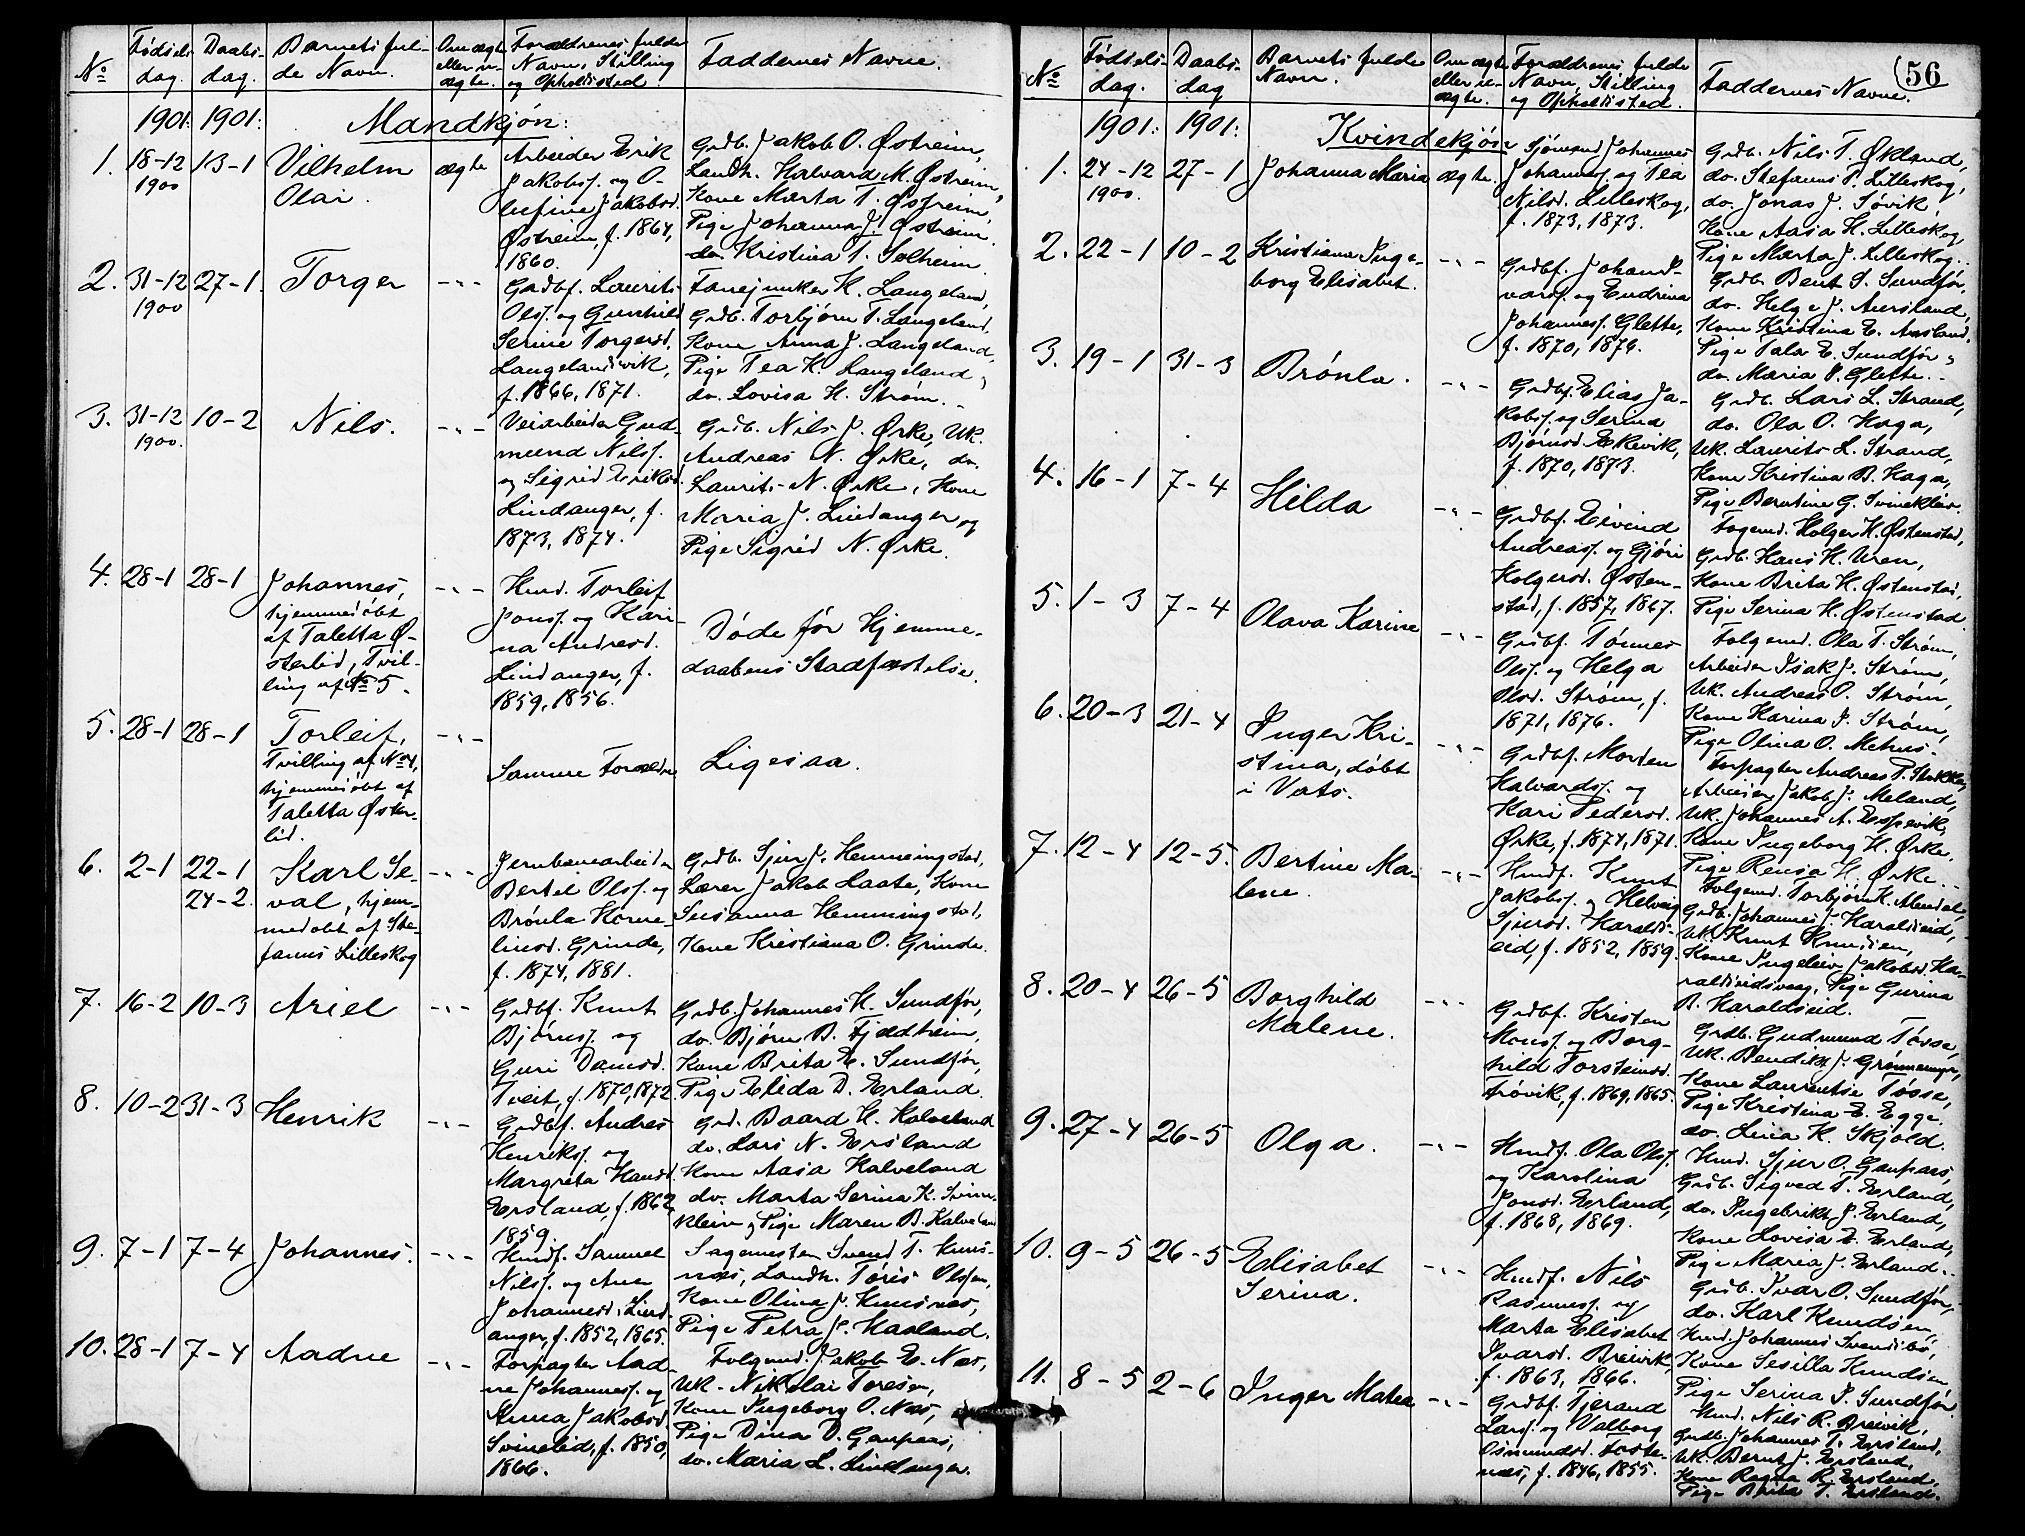 No
Fødsels-
dag.
Daabs-
dag.
Barnets ful-
de Navn.
Om ægte
eller u-
ægte.
Forældrenes fulde
Navn, Stilling
og Opholdssted.
Faddernes Navne.
1901. 1901. Mandkjøn:
1. 18-12
1900
13-1
Vilhelm
Olai.
ægte
Arbeider Erik
Jakobss. og O-
lufine Jakobsd.
Østreim, f. 1864,
1860.
Grdb. Jakob O. Østreim,
Landh. Halvard M. Østreim,
Kone Marta T. Østreim,
Pige Johanna J. Østreim.
do. Kristina T. Solheim.
2. 31-12
1900
27-1.
Torger
-"-
Grdbf. Laurits
Olss. og Gunhild
Serine Torgersd.
Langelandsvik,
f. 1866, 1871.
Fanejunker K. Langeland,
Grdb. Torbjørn T. Langeland,
Kone Anna J. Langeland,
Pige Tea K. Langeland,
do. Lovisa H. Strøm.
3. 31-12
1900.
10-2
Nils.
-"-
Veiarbeider Gud-
mund Nilss.
og Sigrid Eriksd.
Lindanger, f.
1873, 1874.
Grdb. Nils J. Ørke, Uk.
Andreas N. Ørke, do.
Laurits N. Ørke, Kone
Marria J. Lindanger og
Pige Sigrid N. Ørke.
4. 28-1 28-1
Johannes,
hjemmedøbt
af Taletta Ø-
sterlid, Tvil-
ling af No 5.
-"-
Hmd. Torleif
Jonss. og Kari-
na Andresd.
Lindanger, f.
1859, 1856.
Døde før Hjemme-
daabens Stadfæstelse.
5. 28-1 28-1
Torleif,
Tvilling af No 4,
hjemmedøbt af
Taletta Øster-
lid.
-"-
Samme Forældre
Ligesaa.
6. 2-1 22-1
24-2.
Karl Se-
val, hjem-
medøbt af Ste-
fanus Lilleskog
-"-
Jernbanearbeider
Bertel Olss. og
Brønla Korne-
liusd. Grinde,
f. 1874, 1881.
Grdb. Sjur J. Hemmingstad,
Lærer Jakob Laate, Kone
Susanna Hemmingstad,
Kone Kristiana O. Grinde.
7. 16-2 10-3
Ariel
-"-
Grdbf. Knut
Bjørnss. og
Guri Danesd.
Tveit, f. 1870, 1872
Grdb. Johannes K. Sundfør,
do. Bjørn B. Fjeldheim,
Kone Brita E. Sundfør,
Pige Elida D. Erland.
8. 10-2 31-3
Henrik
-"-
Grdbf. Andres
Henrikss. og
Margreta Hansd.
Ersland, f. 1862,
1859.
Grd. Baard H. Kalveland
do. Lars N. Ersland
Kone Aasa Kalveland
do. Marta Serina K. Svine-
kleiv og Pige Maren B. Kalveland
9. 7-1 7-4
Johannes.
-"-
Hmdf. Samuel
Nilss. og Ane
Johannesd. Lind-
anger, f. 1852, 1865.
Sagemester Svend T. Knæs-
næs, Landh. Tøris Olssen,
Kone Olina J. Knæsnæs,
Pige Petra J. Hasland.
10. 28-1 7-4
Aadne
-"-
Forpagter Aad-
ne Johanness. og
Anna Jakobsd.
Svinelid, f. 1850,
1866.
Folgemd. Jakob E. Næs,
Uk. Nikolai Toresen,
Kone Ingeborg O. Næs,
Pige Dina D. Gaupaas,
do. Maria L. Lindanger.
(56
No
Fødsels-
dag.
Daabs-
dag
Barnets fulde
Navn.
Om ægte
eller u-
ægte.
Forældrenes fulde
Navn, Stilling
og Opholdssted.
Faddernes Navne.
1901. 1901. Kvindekjøn
1. 24-12
1900.
27-1
Johanna Maria
ægte.
Sjømand Johannes
Johanness. og Tea
Nilsd. Lilleskog,
f. 1873, 1873.
Grdb. Nils T. Økland,
do. Stefanus P. Lilleskog,
do. Jonas J. Søvik,
Kone Aasa H. Lilleskog
Pige Marta J. Lilleskog.
2. 22-1 10-2
Kristiana Inge-
borg Elisabet.
-"-
Grdbf. Johan I-
varss. og Endrina
Johanness. Glette,
f. 1870, 1876.
Grdb. Bent S. Sundfør,
do. Helge J. Aursland,
Kone Kristina E. Aasland.
Pige Tala E. Sundfør,
do. Maria P. Glette.
3. 19-1 31-3
Brønla.
-"-
Grdbf. Elias Ja-
kobss. og Serina
Bjørnsd. Ekevik,
f. 1870, 1873.
Grdb. Lars L. Strand,
do. Ola O. Haga,
Uk. Laurits L. Strand,
Kone Kristina B. Haga,
Pige Berntine G. Svinekleiv.
4. 16-1 7-4
Hilda
-"-
Grdbf. Eivind
Andreass. og Gjøri
Holgersd. Østen-
stad, f. 1857, 1867.
Fogemd. Holger K. Østenstad,
Grdb. Hans K. Uren,
Kone Brita H. Østenstad,
Pige Serina H. Østenstad.
5. 1-3 7-4
Olava Karine
-"-
Grdbf. Tønnes
Olss. og Helga
Olsd. Strøm, f.
1871, 1876.
Folgemd. Ola T. Strøm,
Arbeider Isak J. Strøm,
Uk. Andreas O. Strøm,
Kone Karina J. Strøm,
Pige Olina O. Mehus.
6. 20-3 21-4
Inger Kri-
stina, døbt
i Vats.
-"-
Grdbf. Morten
Halvardss. og
Kari Pedersd.
Ørke, f. 1874, 1871.
Forpagter Andreas P. Stokka,
Arbeider Jakob J. Meland,
Uk. Johannes A. Espevik,
Kone Ingeborg H. Ørke,
Pige Rensa H. Ørke.
7. 12-4 12-5.
Bertine Ma-
lene.
-"-
Hmdf. Knut
Jakobss. og Helvig
Sjursd. Haralds-
eid, f. 1852, 1859.
Folgemd. Torbjørn K. Alendal,
Grdb. Johannes J. Haraldseid,
Uk. Knut Knudsen,
Kone Ingeleiv Jakobsd. Ha-
raldseidsvaag, Pige Gurina
B. Haraldseid.
8. 20-4 26-5
Borghild
Malene.
-"-
Grdbf. Kristen
Monss. og Borg-
hild Torsteinsd.
Frøvik, f. 1869, 1865.
Grdb. Gudmund Tøsse,
Uk. Bendik J. Grønnemyr,
Kone Laurentse Tøsse,
Pige Kristina E. Egge.
do. Lina K. Skjold.
9. 27-4 26-5
Olga.
-"-
Hmdf. Ola Olss.
og Karolina
Jonsd. Erland,
f. 1868, 1869.
Hmd. Sjur O. Gaupaas,
Grdb. Sigved T. Erland,
do. Ingebrikt J. Erland,
Kone Lovisa E. Erland,
Pige Maria J. Erland.
10. 9-5 26-5
Elisabet
Serina.
-"-
Hmdf. Nils
Rasmuss. og
Marta Elisabet
Ivarsd. Breivik,
f. 1863, 1866.
Grdb. Ivar O. Sundfør,
do. Karl Knudsen,
Hmd. Johannes Svendsbø,
Kone Sesilla Knudsen
Pige Serina I. Sundfør.
Hmd. Nils R. Breivik.
11. 8-5 2-6
Inger Malea
-"-
Grdbf. Tjerand
Larss. og Valborg
Osmundsd. Toste-
næs, f. 1846, 1855.
Grdb. Johannes T. Ersland,
Uk. Bernt J. Ersland,
Kone Ragna R. Ersland,
Pige Brita T. Ersland.